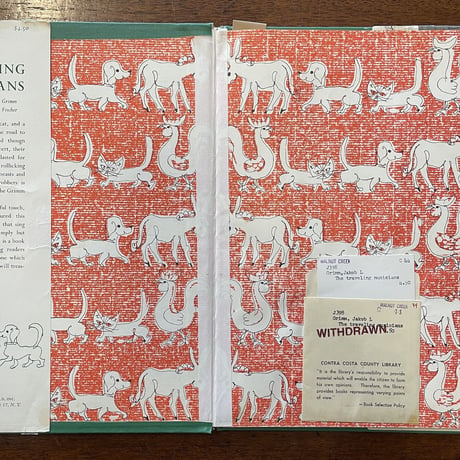 $4.50
ING
ANS
Grimm
Fischer
cat, and a
e road to
d though
cert, their
lasted for
rollicking
beasts and
robbery is
he Grimm
ful touch,
ured this
that sing
mply but
is a book
ng readers
one which
will treas-
17, N. Y.
WALNUT CREEK
J398
Grimm, Jakob L
The traveling musicians
4.50
WALNUT CREEK
J398
Grimm, Jakob L
The traveling musicians
WITHDRAWN
.50
CONTRA COSTA COUNTY LIBRARY
"It is the library's responsibility to provide
material which will enable the citizen to form
his own opinions. Therefore, the library
provides books representing varying points
of view."
—Book Selection Policy